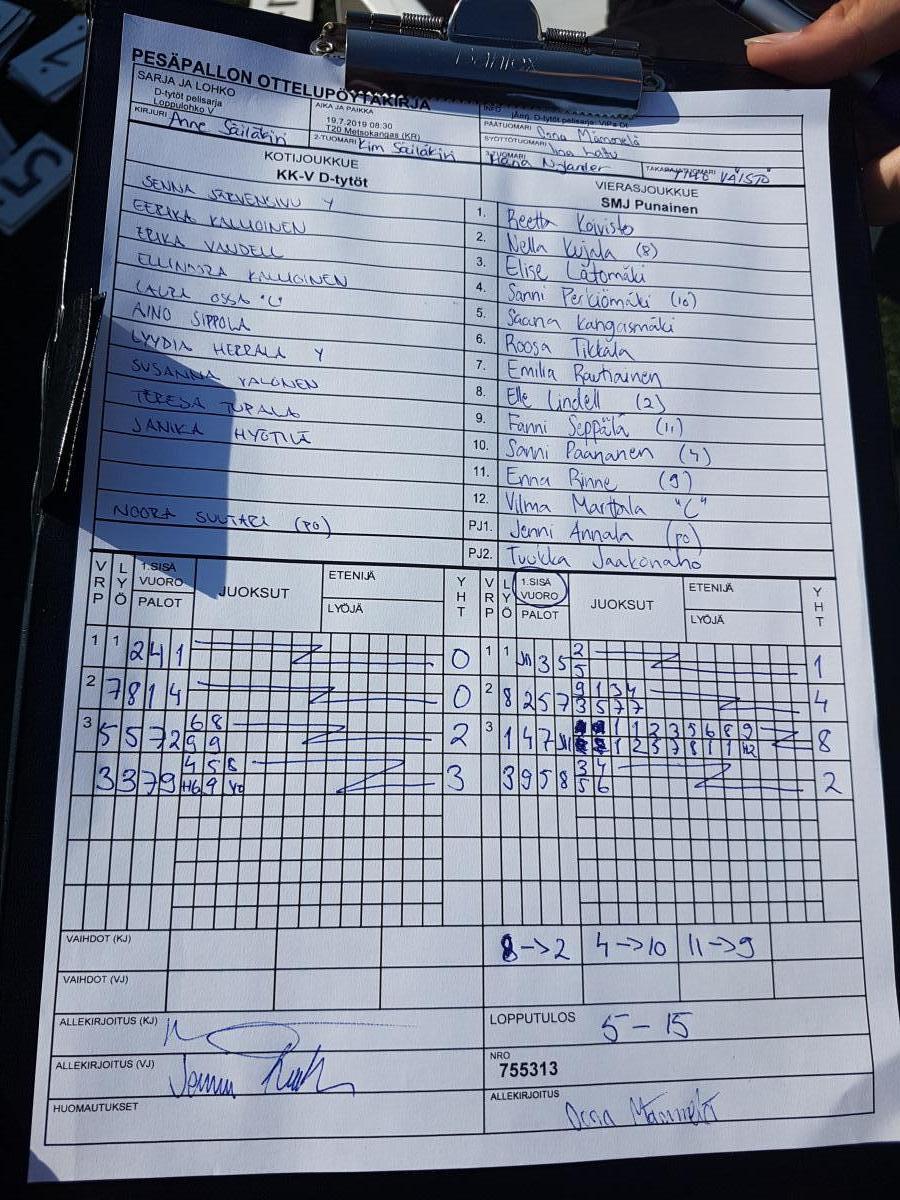 PESÄPALLON OTTELUPÖYTÄKIRJA
SARJA JA LOHKO
D-tytöt pelisarja
Loppulohko V
AIKA JA PAIKKA
19.7.2019 08:30
T20 Metsokangas (KR)
INFO
D-tytöt pelisarja: ViPa Ol
KIRJURI Anne Säiläkivi
2-TUOMARI Kim Säiläkivi
PÄÄTUOMARI Oona Mämmelä
SYÖTTÖTUOMARI
3-TUOMARI
TAKARAJATUOMARI
KOTIJOUKKUE
KK-V D-tytöt
VIERASJOUKKUE
SMJ Punainen
SENNA JÄRVENSIVU Y
1. Reetta Koivisto
EERIKA KALLIOINEN
2. Nella Kujala (8)
ERIKA VANDELL
3. Elise Latomäki
ELLINOORA KALLIOINEN
4. Sanni Perkiömäki (10)
LAURA OSSA "C"
5. Saana Kangasmäki
AINO SIPPOLA
6. Roosa Tikkala
LYYDIA HERRALA Y
7. Emilia Rautiainen
SUSANNA YALONEN
8. Elle Lindell (2)
TERESA TUPALA
9. Fanni Seppälä (11)
JANIKA HYÖTILÄ
10. Sanni Paananen (4)
11. Enna Rinne (9)
12. Vilma Marttala "C"
NOORA SUUTARI (PO)
PJ1. Jenni Annala (PO)
PJ2. Tuukka Jaakonaho
VRP LYÖ 1.SISÄ VUORO PALOT JUOKSUT ETENIJÄ LYÖJÄ YHT
VRP LYÖ 1.SISÄ VUORO PALOT JUOKSUT ETENIJÄ LYÖJÄ YHT
1 1 2 4 1 0
1 1 3 5 2 5 1
2 7 8 1 4 0
2 8 2 5 7 9 1 3 4 3 5 7 7 4
3 5 5 7 2 6 8 9 9 2
3 1 4 7 1 1 2 3 5 6 8 9 8
3 3 7 9 4 5 8 3
3 9 5 8 3 4 5 6 2
VAIHDOT (KJ)
8->2 4->10 11->9
VAIHDOT (VJ)
ALLEKIRJOITUS (KJ)
LOPPUTULOS 5-15
ALLEKIRJOITUS (VJ)
NRO
755313
HUOMAUTUKSET
ALLEKIRJOITUS Oona Mämmelä